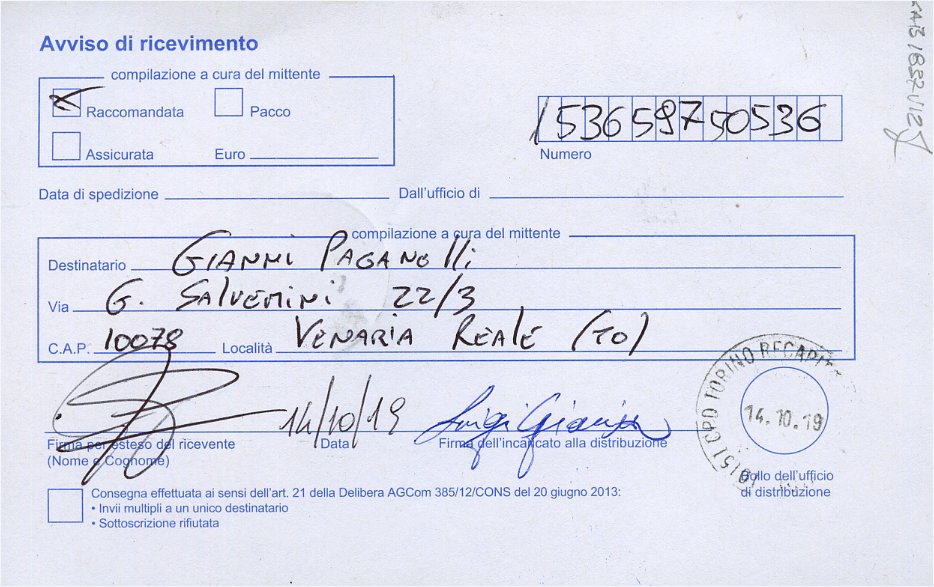 Avviso di ricevimento
compilazione a cura del mittente
Raccomandata Pacco
Assicurata Euro
153659750536
Numero
Data di spedizione Dall'ufficio di
compilazione a cura del mittente
Destinatario GIANNI PAGANElli
Via G. SALVEMINI 22/3
C.A.P. 10078 Località VENARIA REALE (TO)
14/10/19
Luigi
Firma per esteso del ricevente Data Firma dell'incaricato alla distribuzione
(Nome e Cognome)
CPD TORINO RECAPIT
14.10.19
Bollo dell'ufficio
di distribuzione
Consegna effettuata ai sensi dell'art. 21 della Delibera AGCom 385/12/CONS del 20 giugno 2013:
• Invii multipli a un unico destinatario
• Sottoscrizione rifiutata